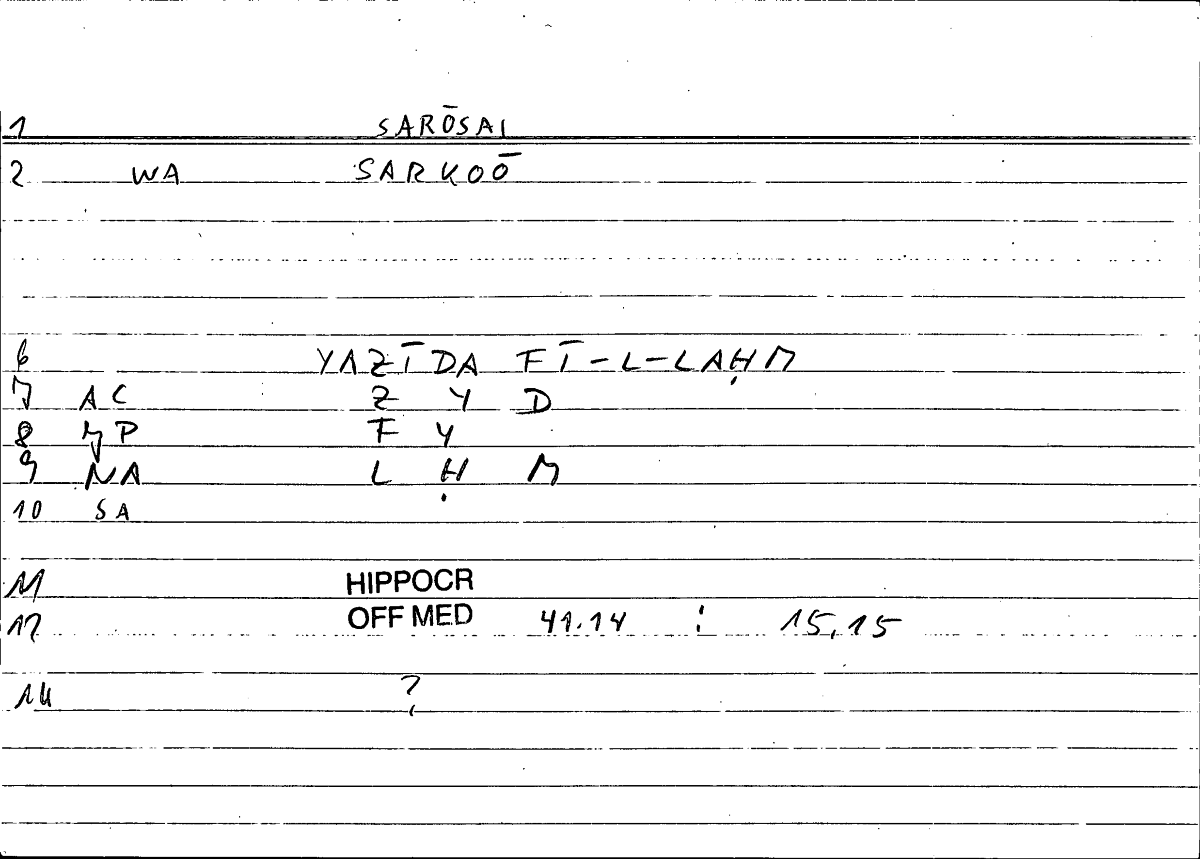 1 SARŌSAI
2 WA SARKOŌ
6 YAZĪDA FĪ-L-LAḤM
7 AC Z Y D
8 YP F Y
9 NA L Ḥ M
10 SA
11 HIPPOCR
12 OFF MED 41.14 : 15,15
14 ?